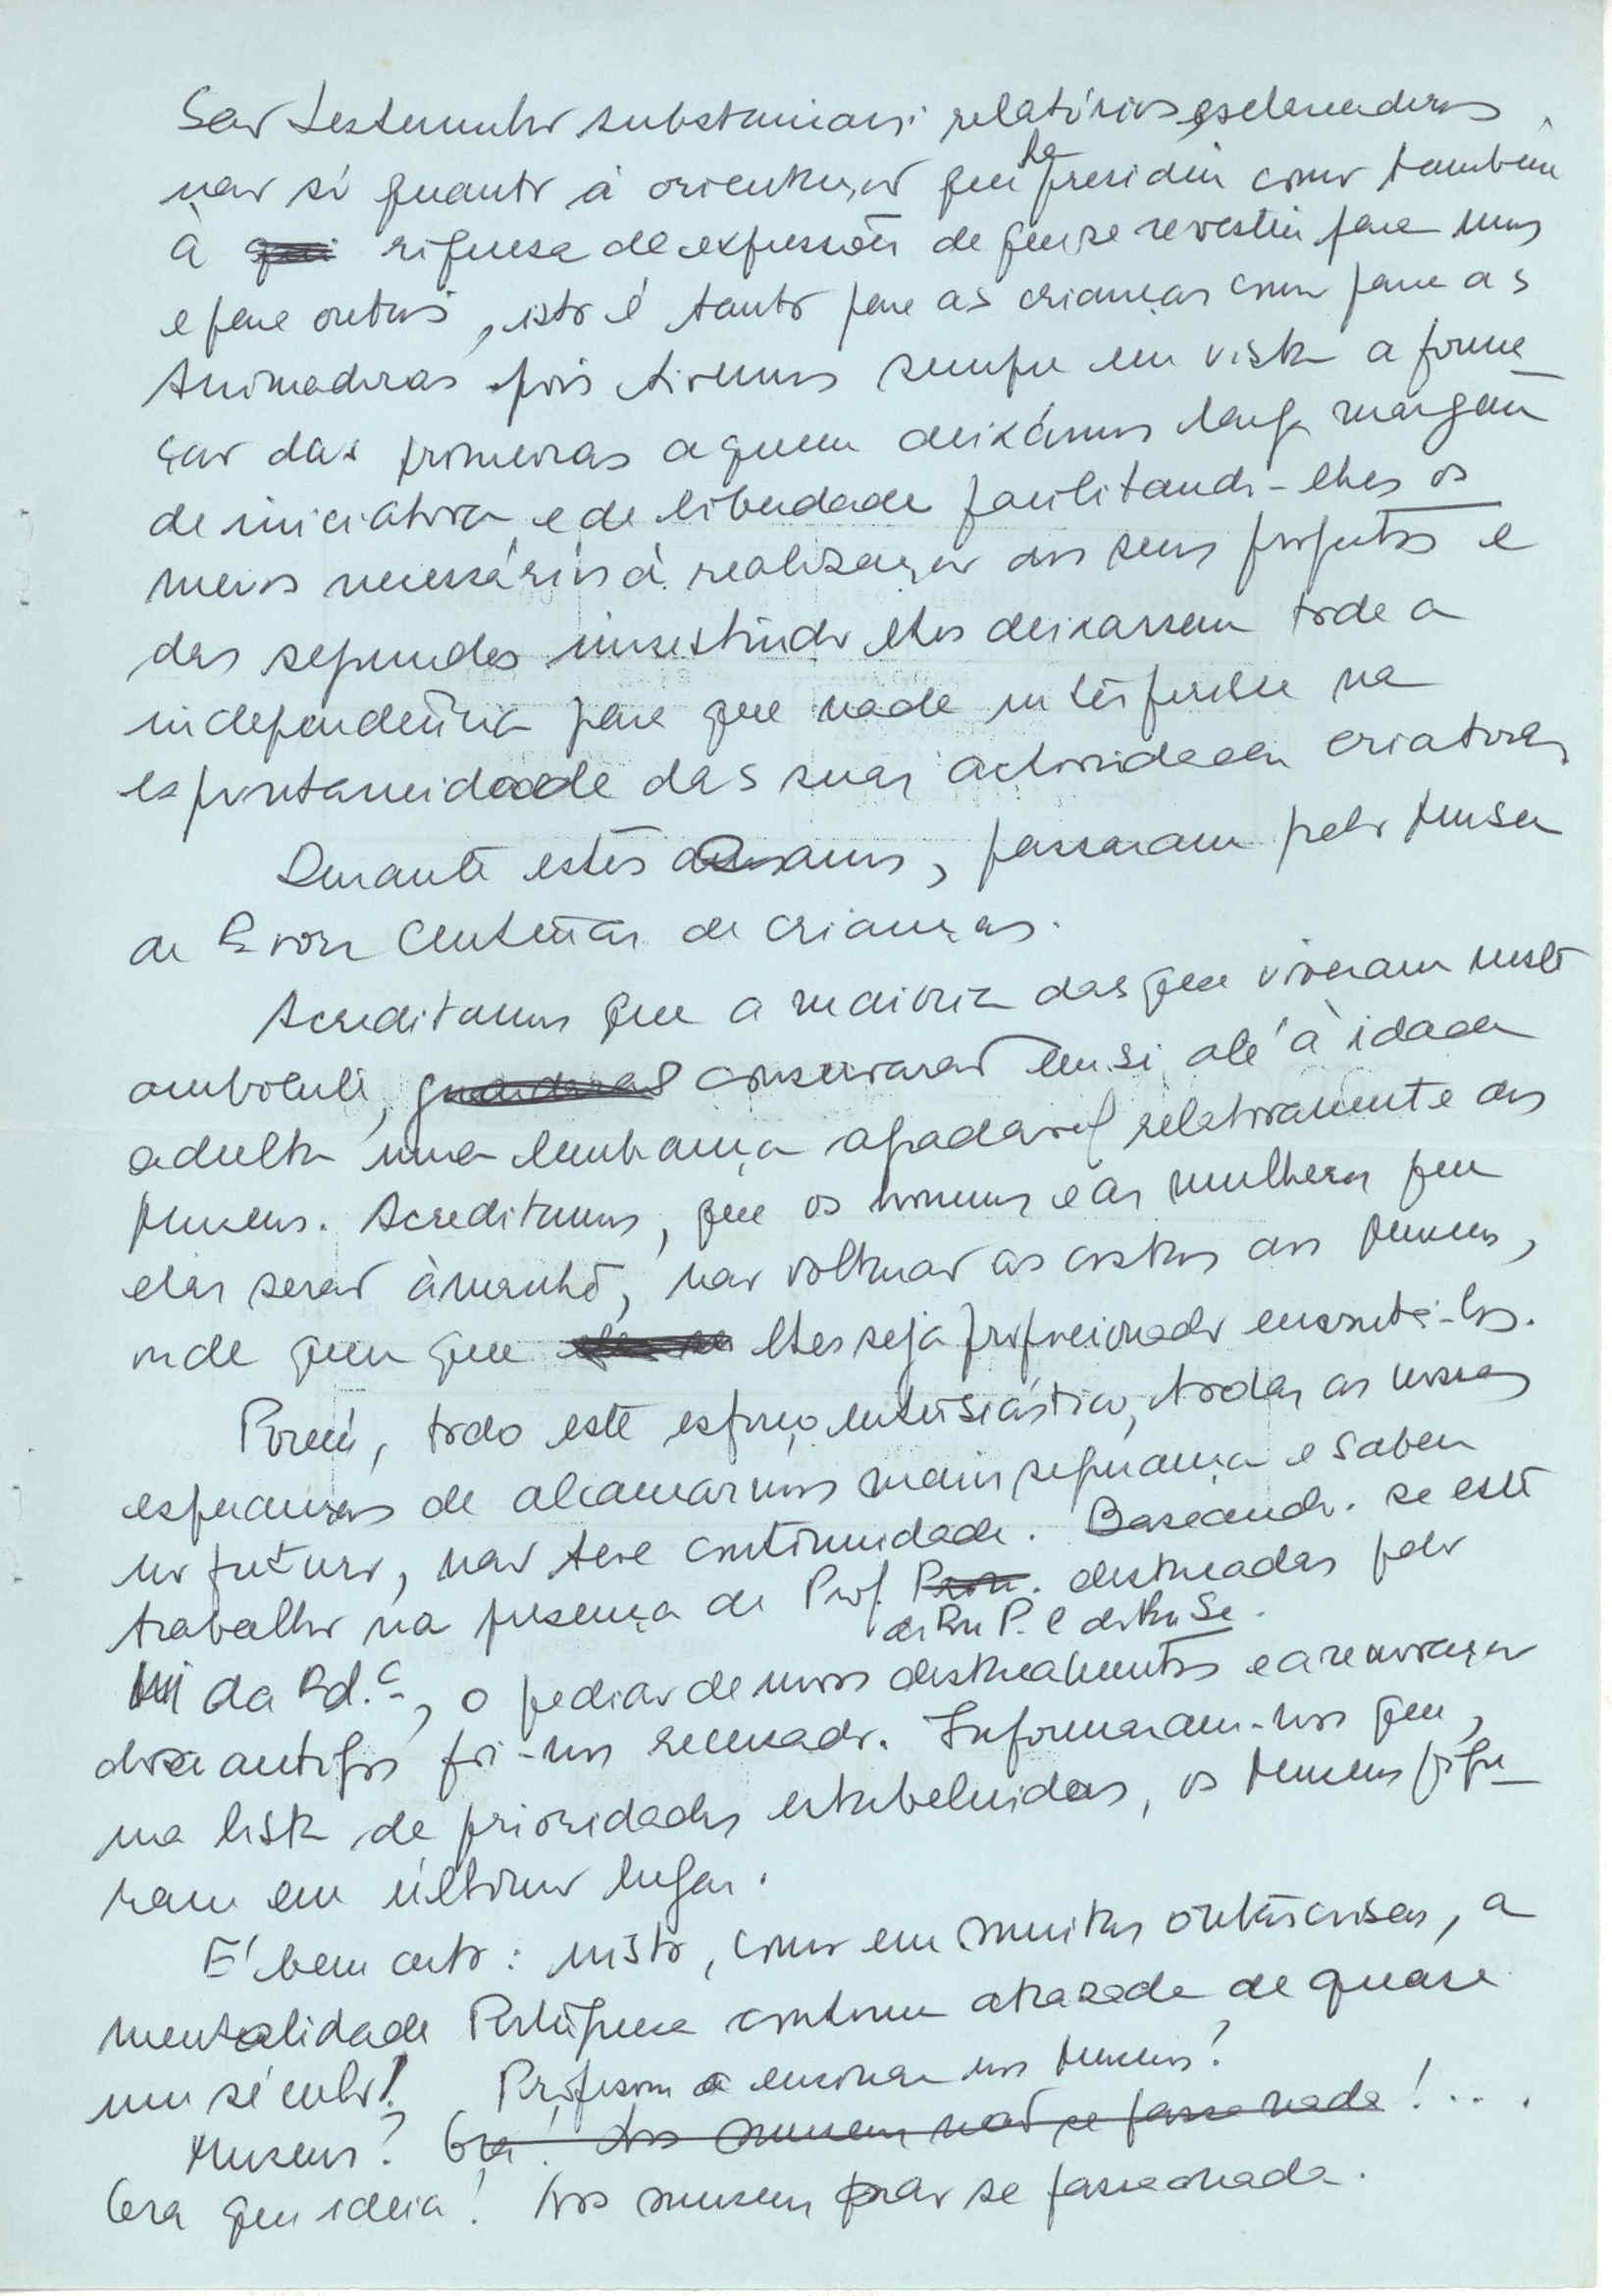 São testemunho substanciais relatórios esclarecedores
não só quanto à orientação que lhe presidiu como também
à riqueza de expressões de que se revestiu para uns
e para outros, isto é tanto para as crianças como para as
Animadoras pois tivemos sempre em vista a forma
ção das primeiras a quem deixámos larga margem
de iniciativa e de liberdade facilitando-lhes os
meios necessários à realização dos seus projectos e
das segundas insistindo lhes deixassem toda a
independência para que nada interferisse na
espontaneidade das suas actividades criadoras
Durante estes anos, passaram pelo Museu
de Évora centenas de crianças.
Acreditamos que a maioria das que viveram neste
ambiente, guardarão conservarão em si até à idade
adulta uma lembrança agradável relativamente aos
Museus. Acreditamos, que os homens e as mulheres que
elas serão àmanhã, não voltarão as costas aos Museus,
onde quer que lhes seja proporcionado encontrá-los.
Porém, todo este esforço entusiástico, todas as nossas
esperanças de alcançarmos mais segurança e saber
no futuro, não teve continuidade. Baseando-se este
trabalho na presença de Prof. destacadas pelo
do En P. e do En Se.
Mi da Ed.ᶜ, o pedido de novos destacamentos e a renovação
dos antigos foi-nos recusado. Informaram-nos que,
na lista de prioridades estabelecidas, os Museus figu-
ram em último lugar.
É bem certo: nisto, como em muitas outras coisas, a
mentalidade Portuguesa continua atrasada de quase
um século! Professores a ensinar nos Museus?
Museus? Ora! Nos museus não se passa nada!...
Ora que ideia! Nos museus não se passa nada.